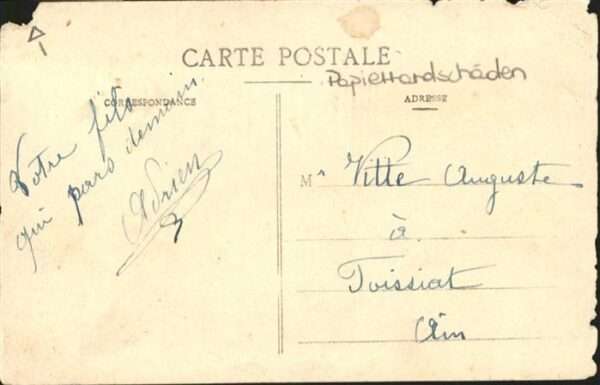 CARTE POSTALE
Papierrandschäden
CORRESPONDANCE
ADRESSE
Votre fils
qui pars demain.
Adrien
M^r Vitte Auguste
à
Toissiat
Ain